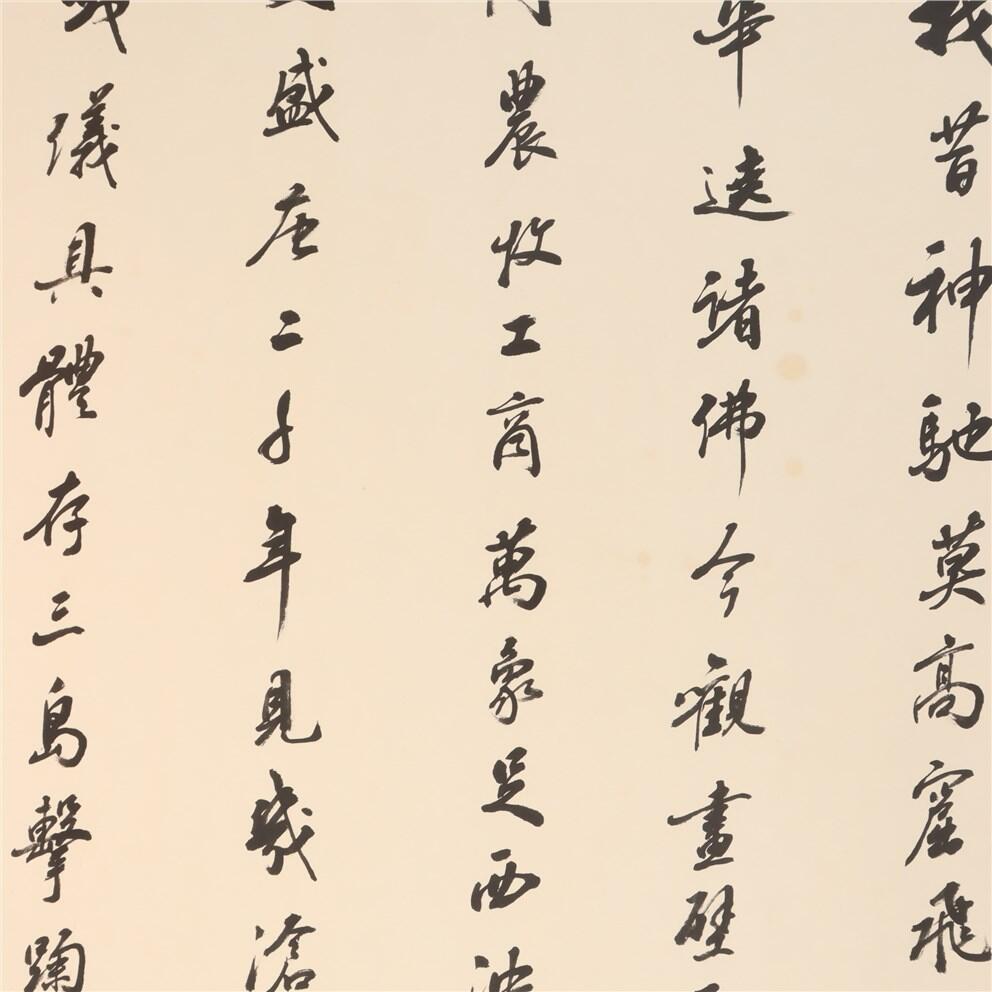 我昔神馳莫高窟飛
遶諸佛今觀畫壁
農牧工商萬象足西
盛唐二千年見幾滄
儀具體存三島擊鞠